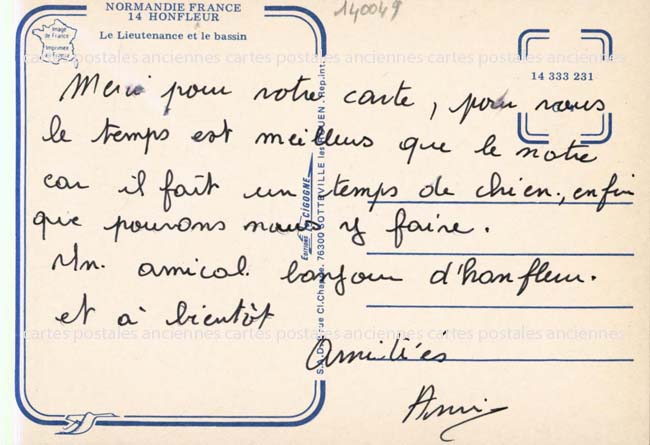 NORMANDIE FRANCE
14 HONFLEUR
Le Lieutenance et le bassin
Image
de France
Imprimée
en France
140049
14 333 231
cartes postales anciennes cartes postales anciennes cartes postales anciennes
Merci pour votre carte, pour vous
le temps est meilleurs que le notre
car il fait un temps de chien, enfin
que pouvons nous y faire.
Un amical bonjour d'honfleur.
et à bientôt
Amitiés
cartes postales anciennes cartes postales anciennes cartes postales anciennes
Editions LA CIGOGNE
76300 SOTTEVILLE les ROUEN - Rep. int.